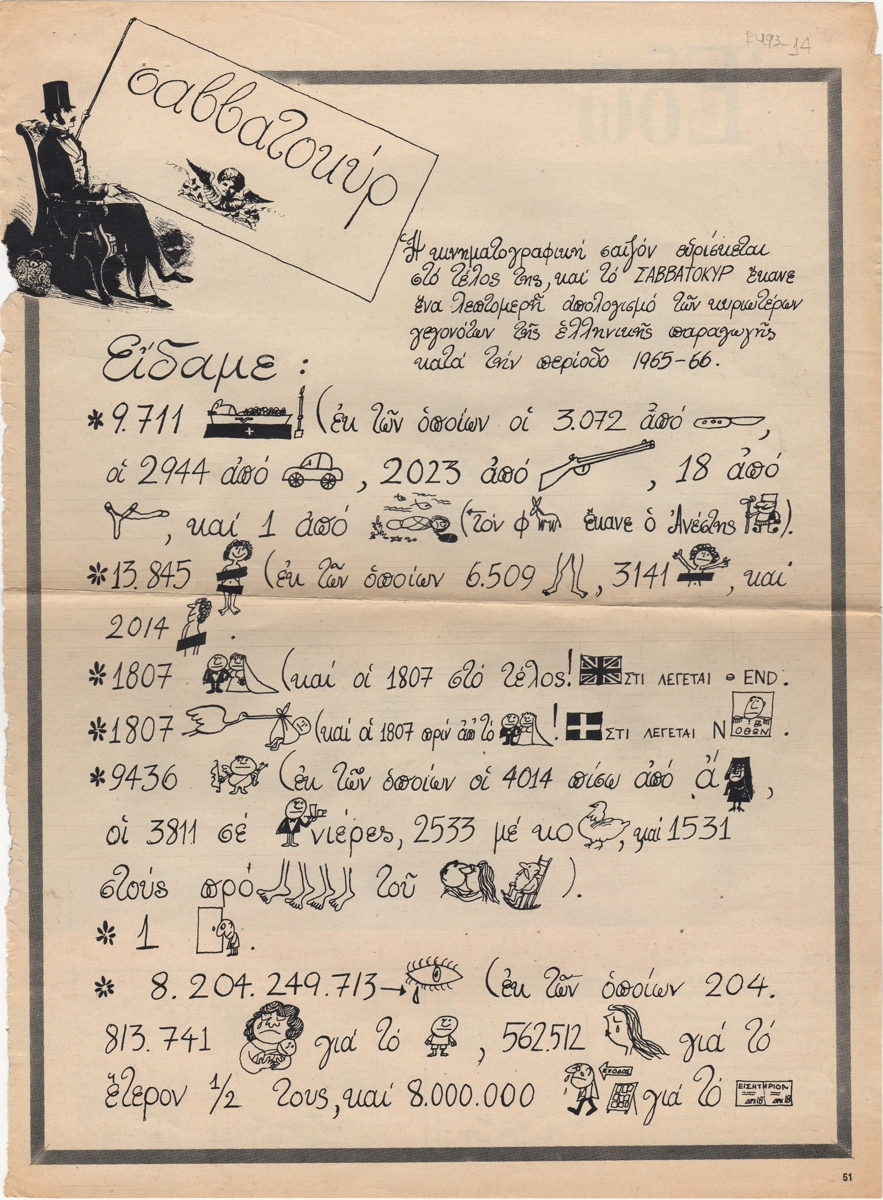 σαββατοκύρ
Ἡ κινηματογραφική σαιζόν εὑρίσκεται
στό τέλος της, καί τό ΣΑΒΒΑΤΟΚΥΡ ἔκανε
ἕνα λεπτομερῆ ἀπολογισμό τῶν κυριωτέρων
γεγονότων τῆς ἑλληνικῆς παραγωγῆς
κατά τήν περίοδο 1965-66.
Εἴδαμε :
* 9.711 (ἐκ τῶν ὁποίων οἱ 3.072 ἀπό ,
οἱ 2944 ἀπό , 2023 ἀπό , 18 ἀπό
, καί 1 ἀπό (τόν φ ἔκανε ὁ Ἀνέστης ).
* 13.845 (ἐκ τῶν ὁποίων 6.509 , 3141 , καί
2014 .
* 1807 (καί οἱ 1807 στό τέλος! ΣΤΙ ΛΕΓΕΤΑΙ Θ END.
* 1807 (καί οἱ 1807 πρίν ἀπ' τό ! ΣΤΙ ΛΕΓΕΤΑΙ Ν ΟΘΩΝ .
* 9436 (ἐκ τῶν ὁποίων οἱ 4014 πίσω ἀπό ἁ ,
οἱ 3811 σέ νιέρες, 2533 μέ κο , καί 1531
στούς πρό τοῦ ).
* 1 .
* 8.204.249.713 (ἐκ τῶν ὁποίων 204.
813.741 γιά τό , 562.512 γιά τό
ἕτερον 1/2 τους, καί 8.000.000 ΕΞΟΔΟΣ γιά τό ΕΙΣΗΤΗΡΙΟΝ ΔΡΧ 18 ΔΡΧ 18
51